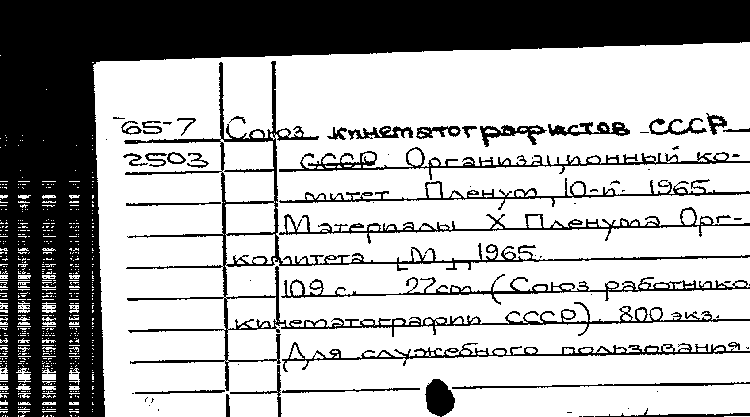 65-7 Союз кинематографистов СССР
2503 СССР. Организационный ко-
митет. Пленум, 10-й. 1965.
Материалы X Пленума Орг-
комитета. [М.], 1965.
109 с. 27 см. (Союз работнико
кинематографии СССР). 800 экз.
Для служебного пользования.